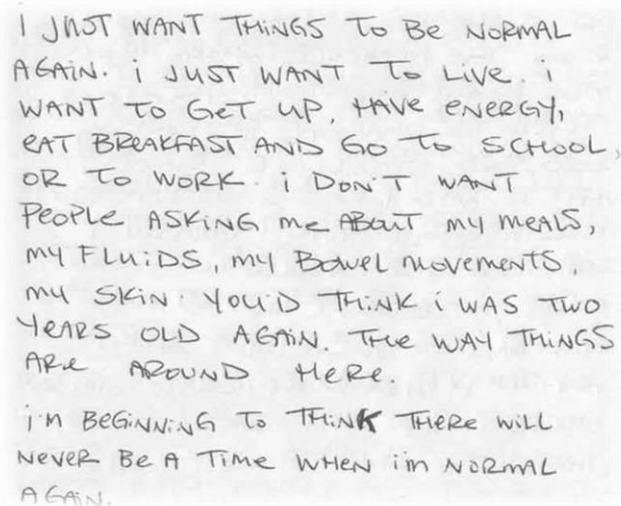 I JUST WANT THINGS TO BE NORMAL
AGAIN. i JUST WANT TO LIVE. i
WANT TO GET UP, HAVE ENERGY,
EAT BREAKFAST AND GO TO SCHOOL,
OR TO WORK. i DON'T WANT
PEOPLE ASKING me ABOUT my meALS,
my FLUiDS, my BOWeL movemeNTS,
my SKiN. YOU'D THiNK i WAS TWO
YEARS OLD AGAiN. THe WAY THiNGS
ARe AROUND HeRe.
i'm BeGiNNiNG TO THiNK THeRe WiLL
NeVeR Be A TiMe WHeN i'm NORMAL
AGAiN.